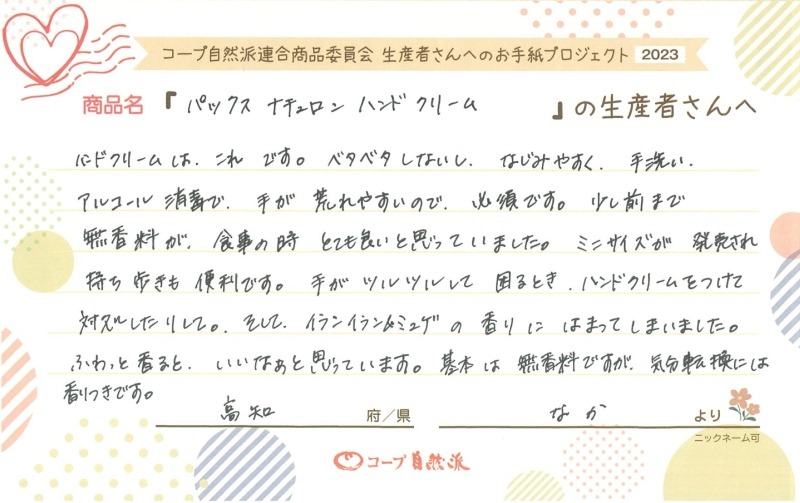 コープ自然派連合商品委員会 生産者さんへのお手紙プロジェクト 2023
商品名『パックス ナチュロン ハンドクリーム 』の生産者さんへ
ハンドクリームは、これ です。ベタベタしないし、なじみやすく、手洗い、
アルコール消毒で、手が 荒れやすいので、必須です。少し前まで
無香料が、食事の時 とても良いと思っていました。ミニサイズが 発売され
持ち歩きも 便利です。手がツルツルして 困るとき、ハンドクリームをつけて
対処したりして。そして、イランイラン&ミュゲの 香りに はまってしまいました。
ふわっと香ると、いいなぁと思っています。基本は 無香料ですが、気分転換には
香りつきです。
高知 府/県 なか より
ニックネーム可
コープ自然派